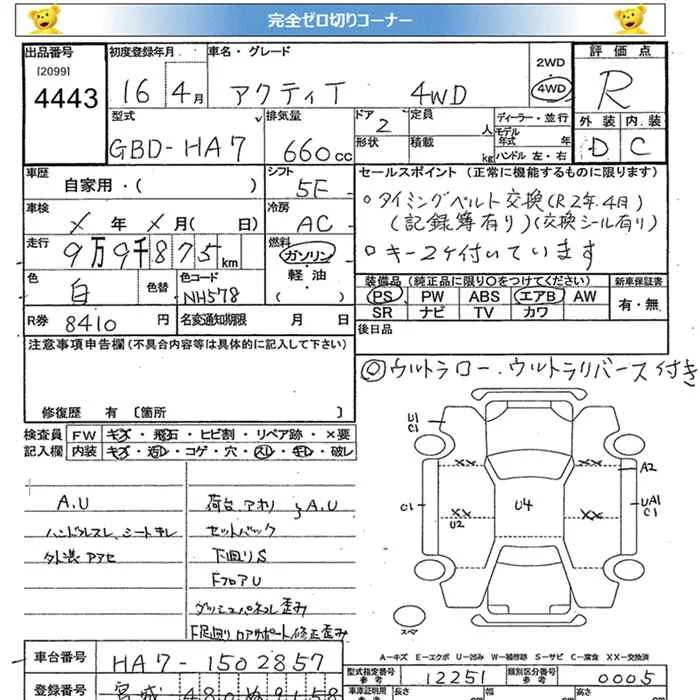 完全ゼロ切りコーナー
出品番号 初度登録年月 車名・グレード 2WD 評価点
[2099]
4443 16 4月 アクティT 4WD 4WD R
型式 排気量 ドア 定員 人 ディーラー・並行 外装 内装
GBD-HA7 660cc 2 モデル年式 年 D C
形状 積載 kg ハンドル 左・右
車歴 シフト セールスポイント (正常に機能するものに限ります)
自家用・( ) 5F
○タイミングベルト交換(R2年.4月)
(記録簿有り)(交換シール有り)
○キー2ケ付いています
車検 冷房
X年 X月( 日) AC
走行 燃料
9万9千875km ガソリン
軽油
( )
色 色替 色コード
白 NH578
装備品 (純正品に限り○をつけてください) 新車保証書
PS PW ABS エアB AW 有・無
SR ナビ TV カワ
R券 8410円 名変通知期限 月 日
後日品
注意事項申告欄(不具合内容等は具体的に記入して下さい)
◎ウルトラロー.ウルトラリバース付き
修復歴 有 [箇所 ]
検査員 FW キズ・飛石・ヒビ割・リペア跡・×要
記入欄 内装 キズ・コゲ・穴・スレ・キレ・破レ
A.U 荷台.アオリ }A.U
ハンドルスレ、シートキレ セットバック
外装アアセ 下回りS
FフロアU
ダッシュパネル歪み
F足回りロアサポート修正歪み
U1
C1
XX XX A2
C1 U4 UA1
C1
XX XX
U2
スペア
A-キズ E-エクボ U-凹み W-補修跡 S-サビ C-腐食 XX-交換済
車台番号 HA7-1502857
型式指定番号 参考 12251 類別区分番号 参考 0005
登録番号 宮城 480
車体証明用 参考 長さ 幅 高さ